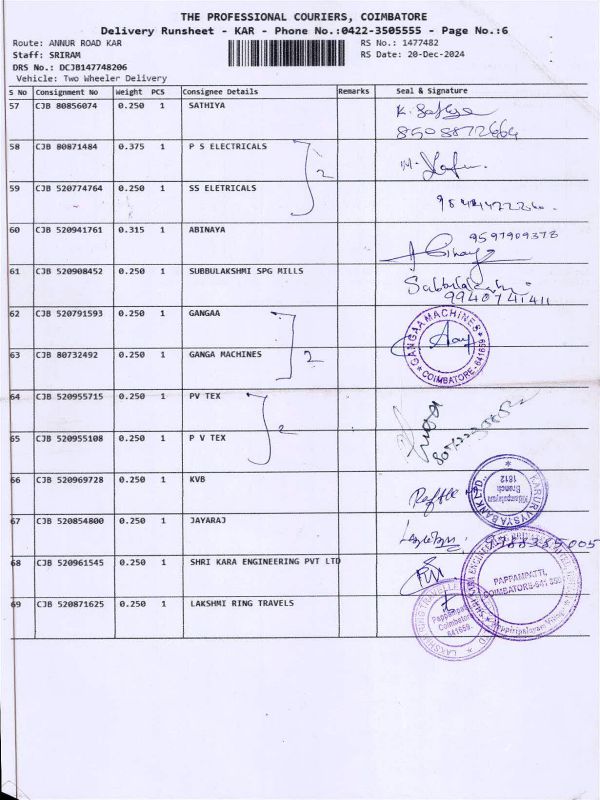 THE PROFESSIONAL COURIERS, COIMBATORE
Delivery Runsheet - KAR - Phone No.:0422-3505555 - Page No.:6
Route: ANNUR ROAD KAR RS No.: 1477482
Staff: SRIRAM RS Date: 20-Dec-2024
DRS No.: DCJB147748206
Vehicle: Two Wheeler Delivery
S No Consignment No Weight PCS Consignee Details Remarks Seal & Signature
57 CJB 80856074 0.250 1 SATHIYA
8508872664
58 CJB 80871484 0.375 1 P S ELECTRICALS
2
59 CJB 520774764 0.250 1 SS ELETRICALS
60 CJB 520941761 0.315 1 ABINAYA 9597909378
61 CJB 520908452 0.250 1 SUBBULAKSHMI SPG MILLS
9940741411
62 CJB 520791593 0.250 1 GANGAA
GANGAA MACHINES
COIMBATORE-641659
63 CJB 80732492 0.250 1 GANGA MACHINES 2
64 CJB 520955715 0.250 1 PV TEX
2
65 CJB 520955108 0.250 1 P V TEX
66 CJB 520969728 0.250 1 KVB
KARUR VYSYA BANK LTD.,
Branch
1812
67 CJB 520854800 0.250 1 JAYARAJ
68 CJB 520961545 0.250 1 SHRI KARA ENGINEERING PVT LTD
PAPPAMPATTI,
COIMBATORE-641
69 CJB 520871625 0.250 1 LAKSHMI RING TRAVELS
Coimbatore
641659